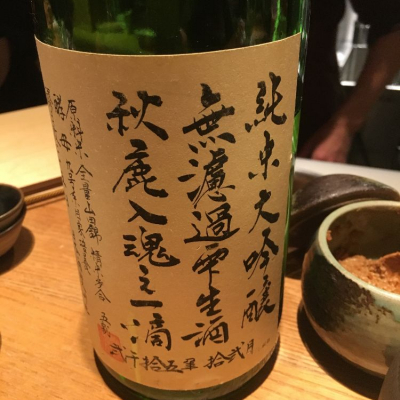 純米大吟醸
無濾過雫生酒
秋鹿入魂之一滴
原料米 全量山田錦 精米歩合 五割
酵母
弐千拾五年 拾弐月